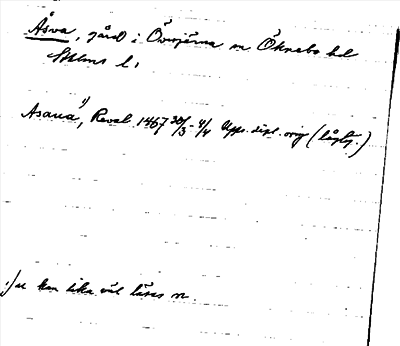 Åsva, gård i Överjärna sn Öknebo hd
Sthlms l.
Asaua¹⁾, Reval 1467 30/3-4/4 Upps. dipl. orig (lågty.)
¹⁾ u kan lika väl läsas n.